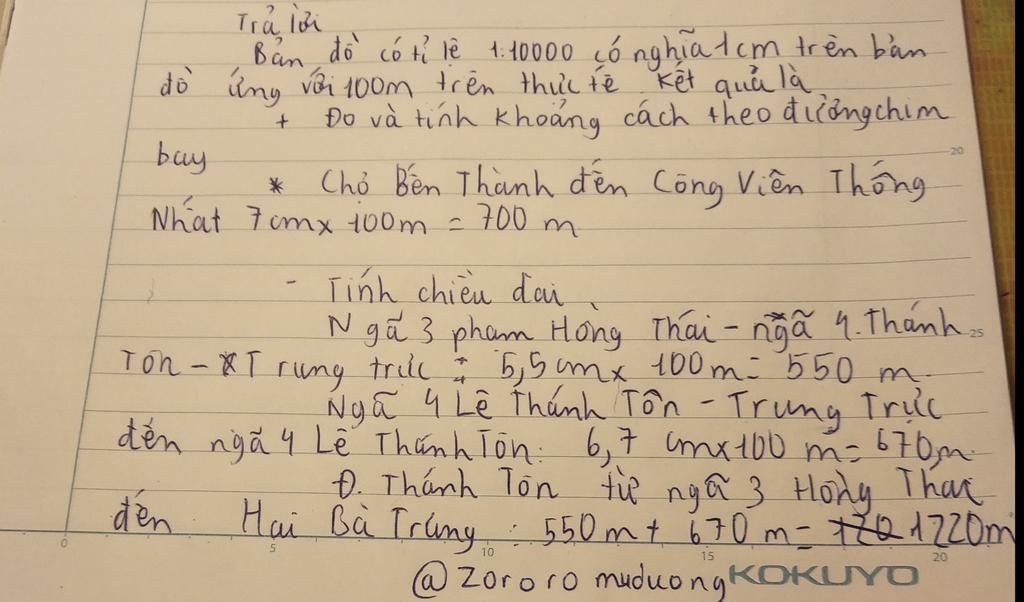 Trả lời
Bản đồ có tỉ lệ 1:10000 có nghĩa 1cm trên bản
đồ ứng với 100m trên thực tế kết quả là
+ Đo và tính khoảng cách theo đường chim
bay
20
* Chợ Bến Thành đến Công Viên Thống
Nhất 7cm x 100m = 700 m
- Tính chiều dài
Ngã 3 phạm Hồng Thái - ngã 4. Thánh
25
Tôn - Trung trực : 5,5cm x 100m = 550 m.
Ngã 4 Lê Thánh Tôn - Trung Trực
đến ngã 4 Lê Thánh Tôn: 6,7 cm x 100 m = 670m.
Đ. Thánh Tôn từ ngã 3 Hồng Thái
đến Hai Bà Trưng : 550 m + 670 m = 1220m
0 5 10 15 20
@zororo muduong KOKUYO